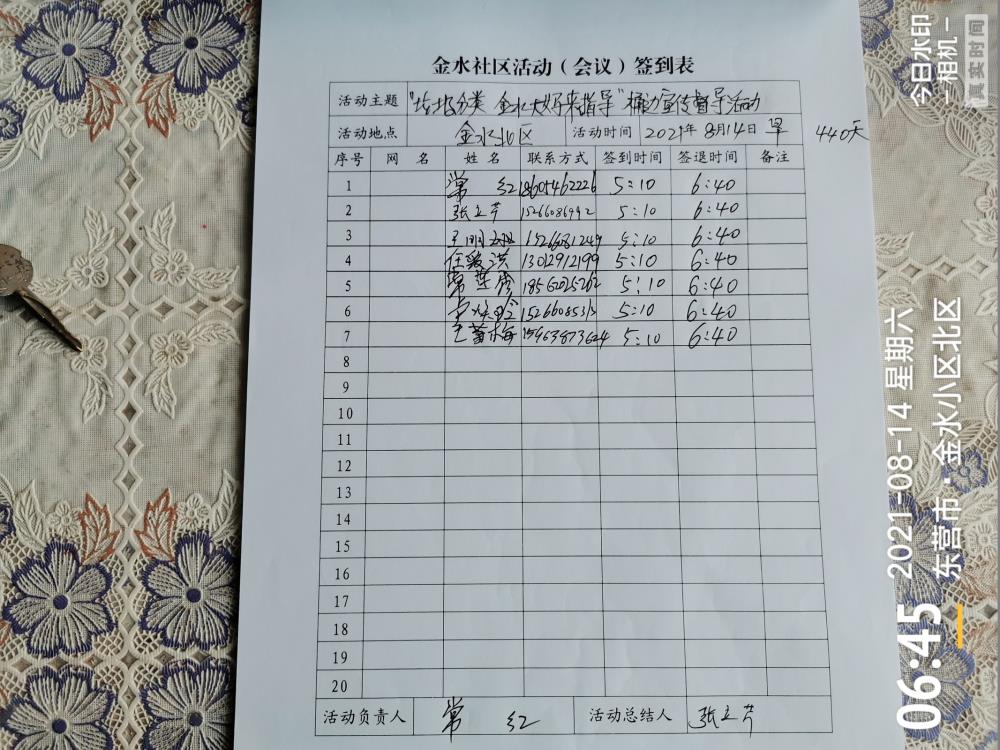 金水社区活动（会议）签到表
活动主题 "垃圾分类 金水大好来指导"桶边宣传督导活动
活动地点 金水北区 活动时间 2021年8月14日 早 440天
序号 网 名 姓 名 联系方式 签到时间 签退时间 备注
1 常 红 18605462226 5:10 6:40
2 张立芹 15266086992 5:10 6:40
3 王明 15266081249 5:10 6:40
4 任爱洪 13012912199 5:10 6:40
5 常 18562025262 5:10 6:40
6 5:10 6:40
7 王 梅 15963873624 5:10 6:40
8
9
10
11
12
13
14
15
16
17
18
19
20
活动负责人 常 红 活动总结人 张立芹
今日水印
相机
真实时间
06:45 2021-08-14 星期六
东营市·金水小区北区